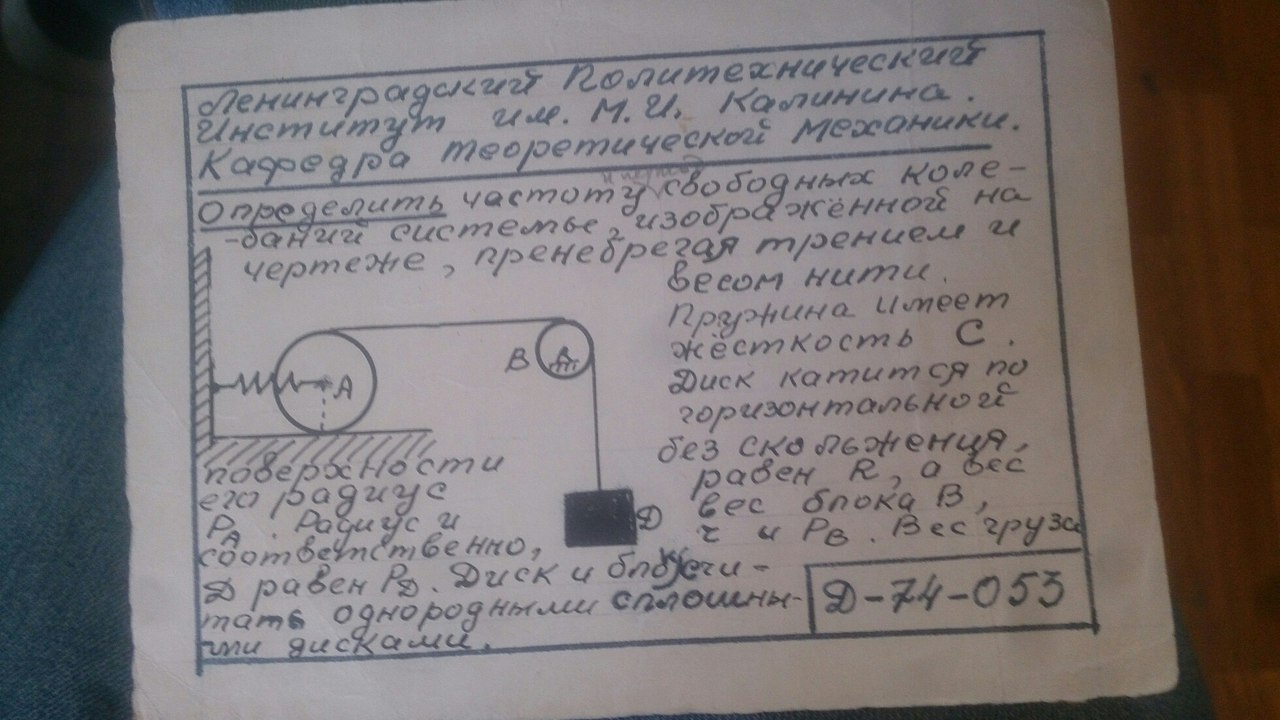 Ленинградский Политехнический
Институт им. М.И. Калинина.
Кафедра теоретической механики.
и период
Определить частоту свободных коле-
-баний системы, изображённой на
чертеже, пренебрегая трением и
весом нити.
Пружина имеет
жёсткость С.
Диск катится по
горизонтальной
поверхности без скольжения,
его радиус равен R, а вес
PА. Радиус и вес блока В,
соответственно, r и PВ. Вес груза
Д равен PД. Диск и блок счи-
тать однородными сплошны-
ми дисками.
А
В
Д
Д-74-053